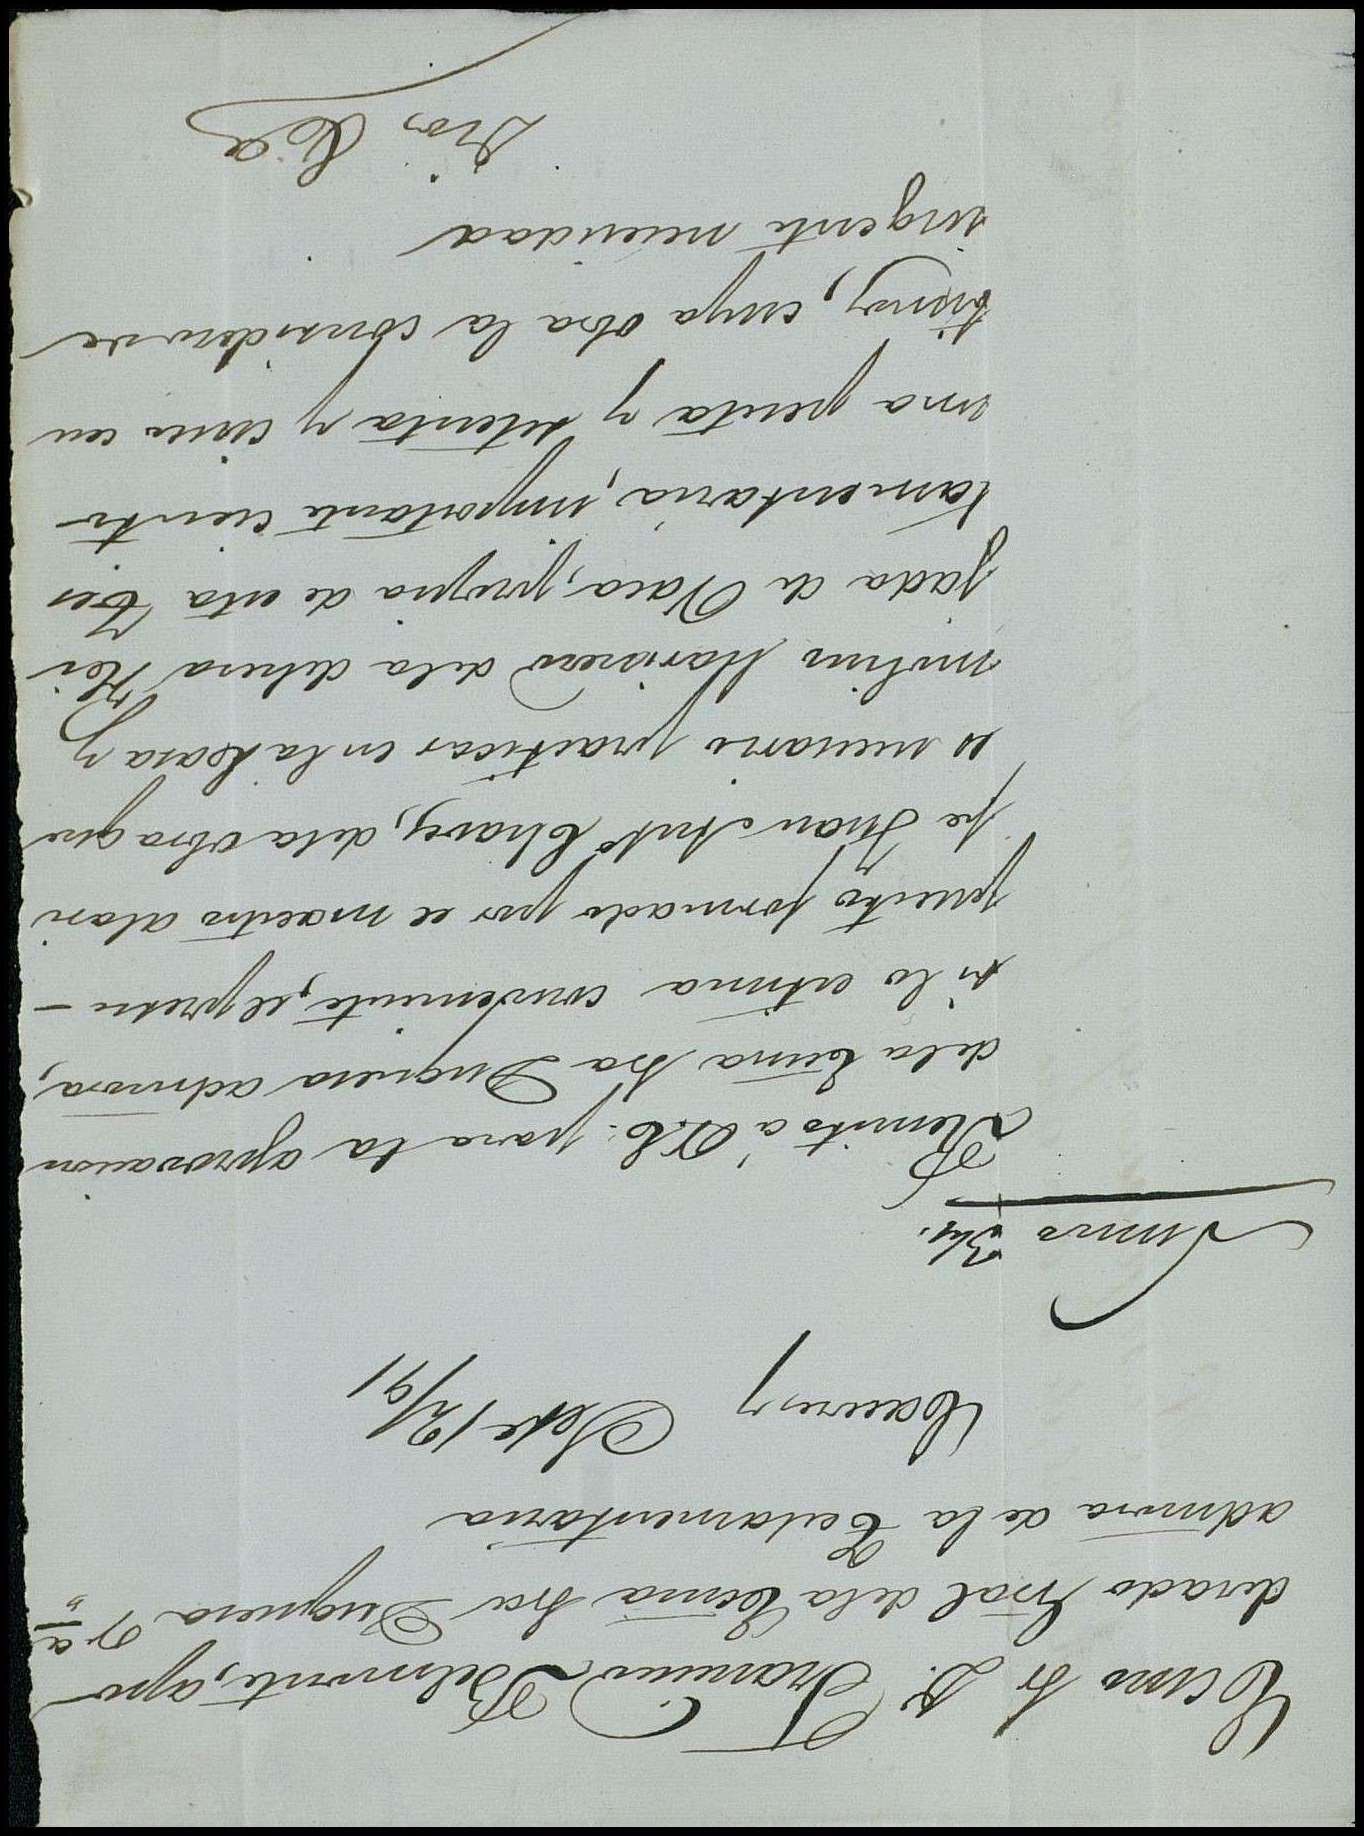 Excmo Sr D. Francisco Belmonte, apo-
derado Gral de la Excma Sra Duquesa Vda
admora de la Testamentaria
Caceres y Sept 12/91
Numo 34.
Remito á V.E. para la aprovacion
dela Excma Sra Duquesa admora,
si lo estima conveniente, el presu-
puesto formado por el maestro alari
fe Juan Anto Chaves, dela obra que
es necesario practicar en la Casa y
molino Harinero dela dehesa
jada de Vaca, propia de esta Tes
tamentaria, importante ciento
una peseta y setenta y cinco cen
timos, cuya obra la considero de
urgente necesidad
Dios